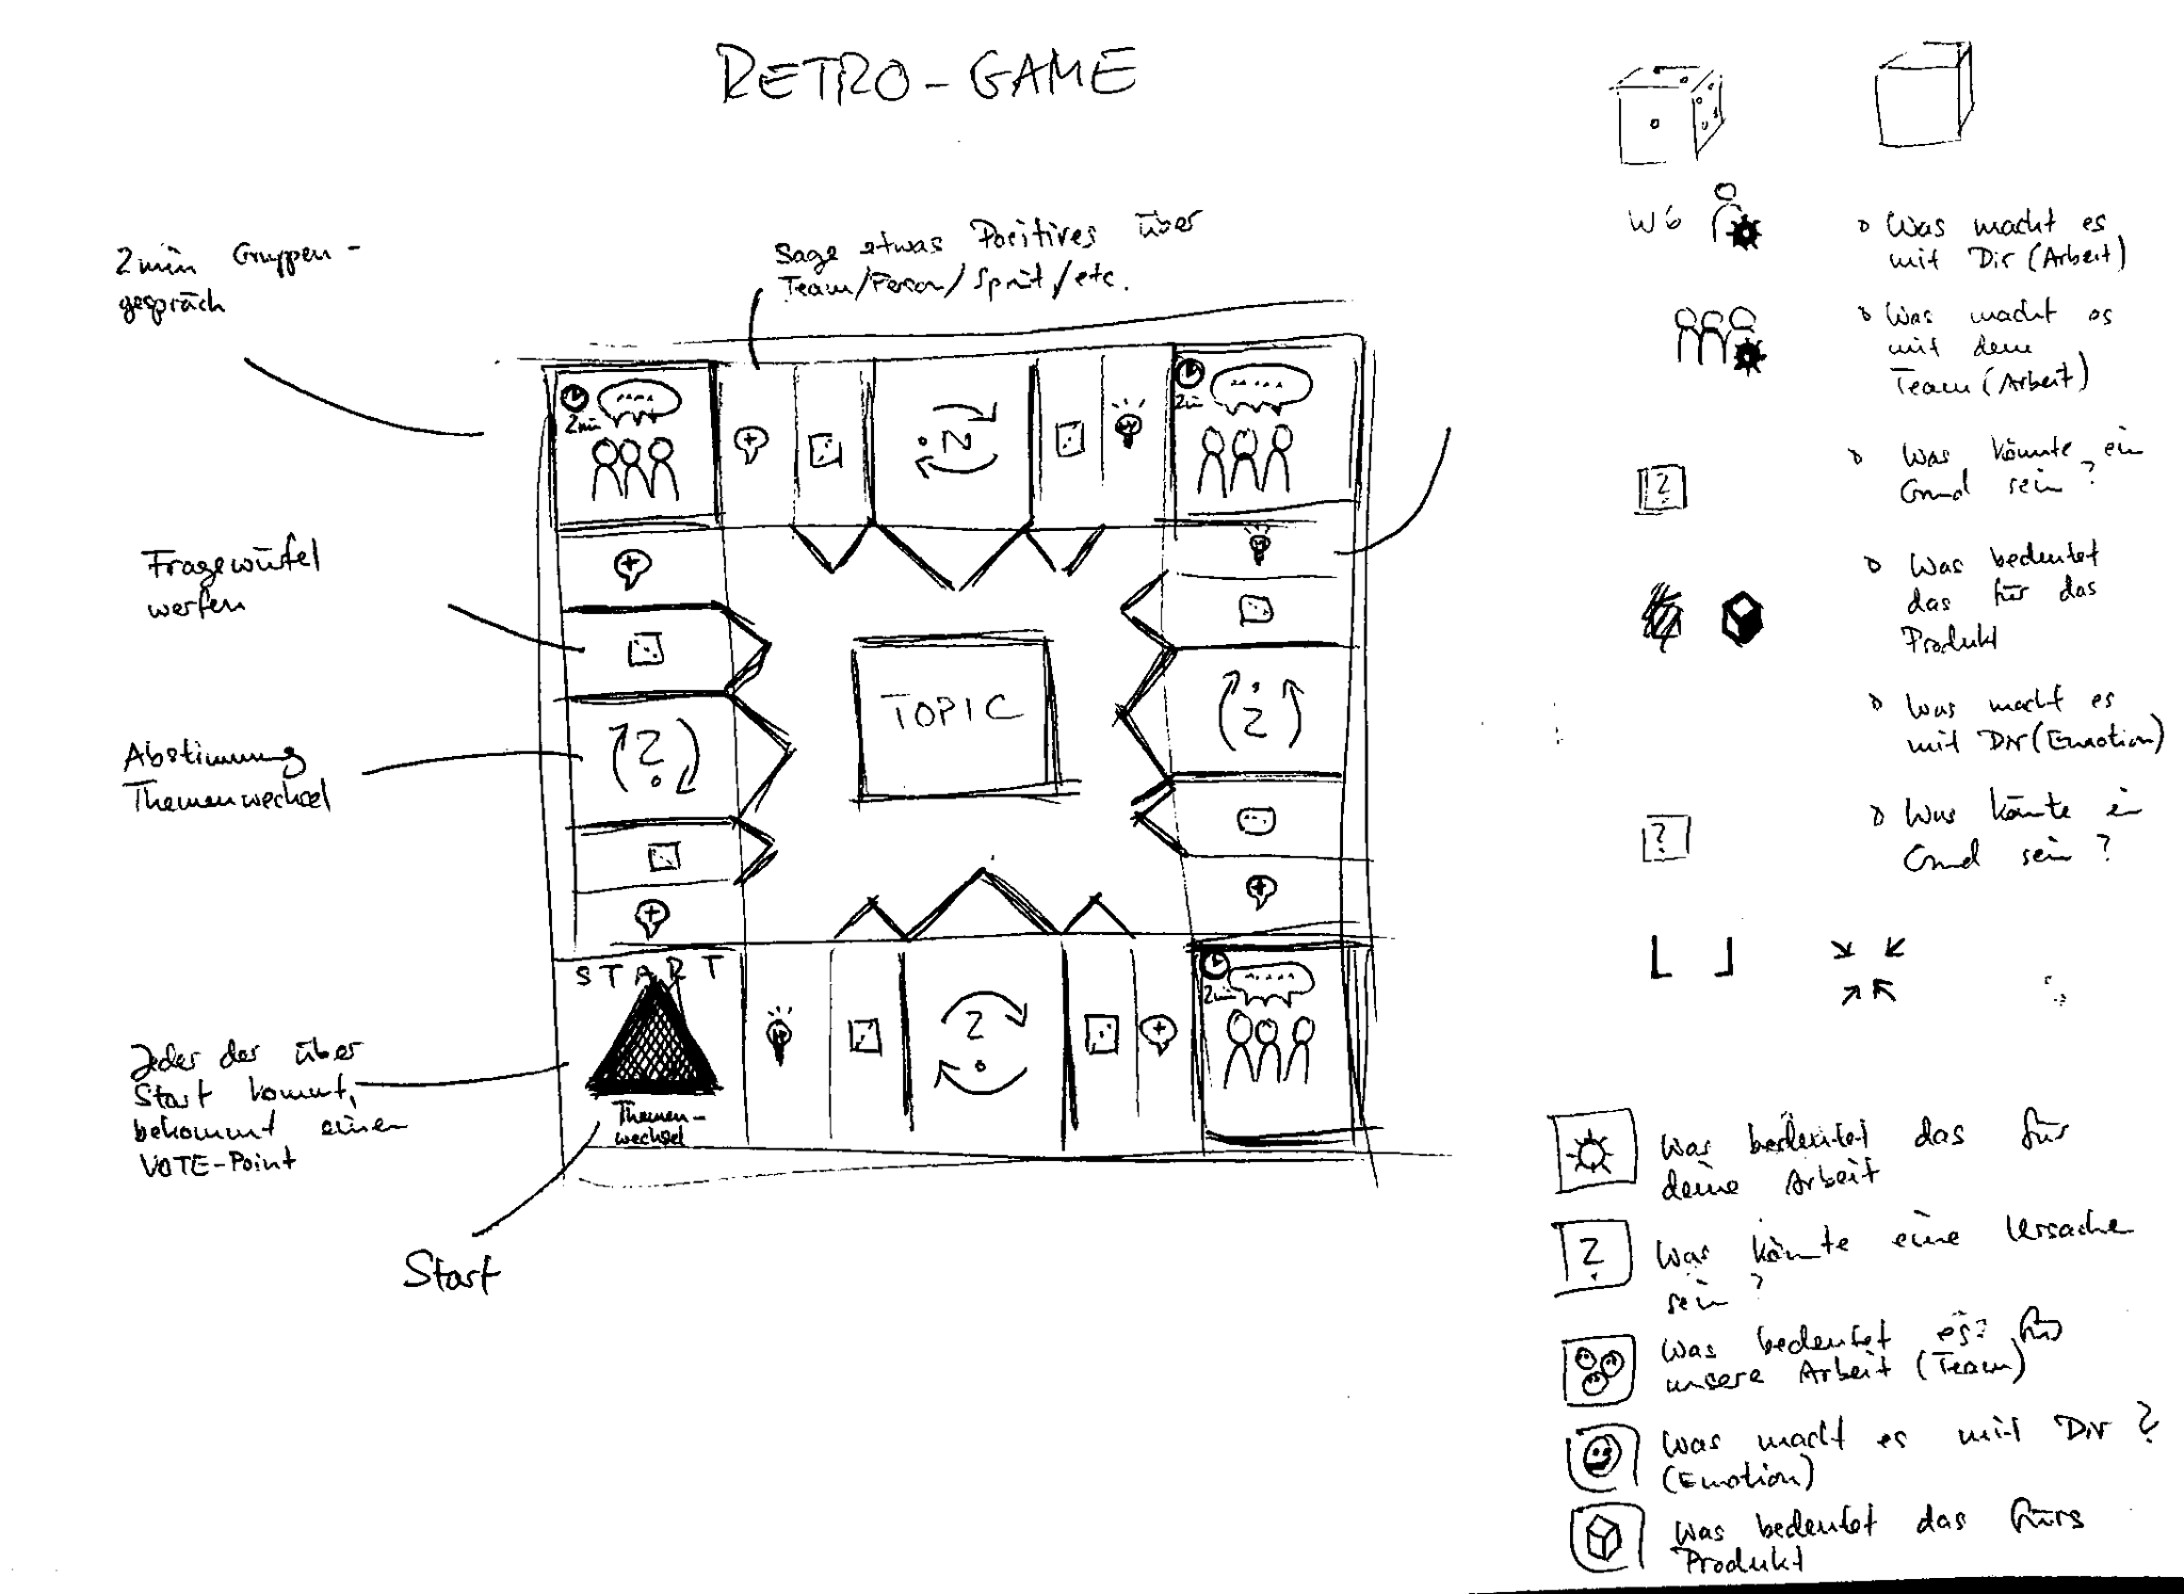 RETRO-GAME
2min Gruppen-
gespräch
Sage etwas Positives über
Team/Person/Sprint/etc.
Fragewürfel
werfen
Abstimmung
Themenwechsel
Jeder der über
Start kommt,
bekommt einen
VOTE-Point
Start
2min
?
2min
?
TOPIC
?
START
Themen-
wechsel
?
2min
W6
Was macht es
mit Dir (Arbeit)
Was macht es
mit dem
Team (Arbeit)
?
Was könnte ein
Grund sein?
Was bedeutet
das für das
Produkt
Was macht es
mit Dir (Emotion)
?
Was könnte ein
Grund sein?
Was bedeutet das für
deine Arbeit
?
Was könnte eine Ursache
sein?
Was bedeutet es für
unsere Arbeit (Team)
Was macht es mit Dir?
(Emotion)
Was bedeutet das fürs
Produkt